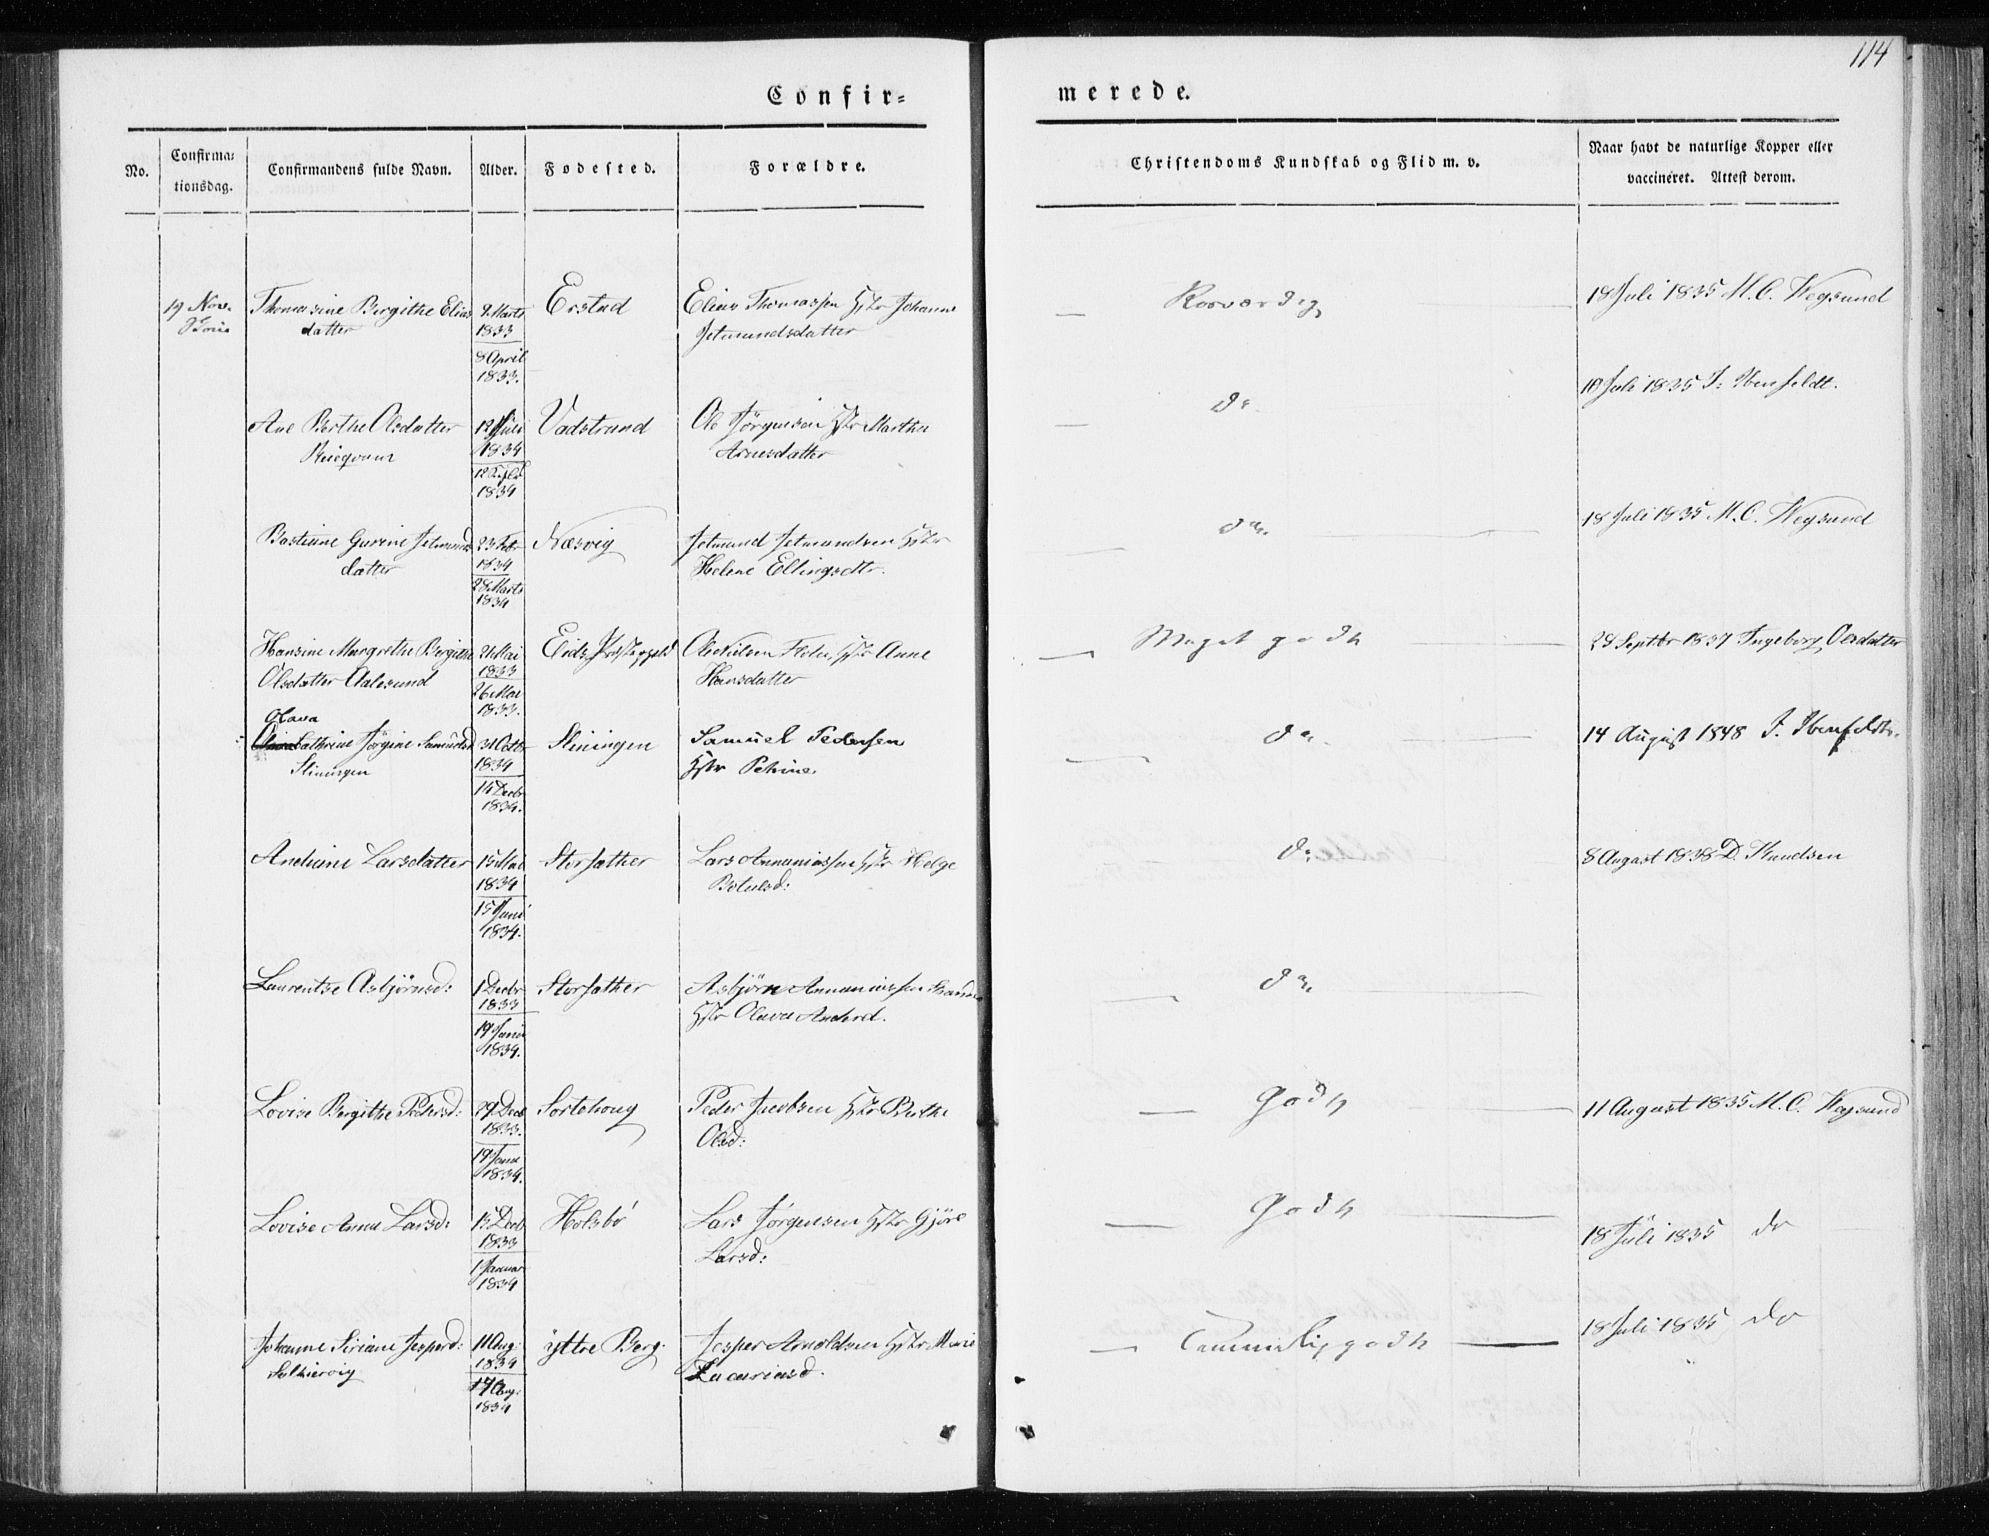 114
Confir-
merede.
No.
Confirma-
tionsdag.
Confirmandens fulde Navn.
Alder.
Fødested.
Forældre.
Christendoms Kundskab og Flid m. v.
Naar havt de naturlige Kopper eller
vaccineret. Attest derom.
19 Nov.
Thomasine Bergithe Elias
datter
9 Marts
1833
8 April
1833.
Erstad
Elias Thomassen Hstr Johanne
Jetmundsdatter
Rosværdig
18 Juli 1835 M. C. Wegsund
Ane Berthe Olsdatter
12 Juli
1834
1834
Vadstrand
Ole Jørgensen Hstr Martha
Arnesdatter
do
10 Juli 1835 J. Ibenfeldt.
Bastiane Gurine Jetmunds
datter
23 Febr
1834
28 Marts
1834
Næsvig
Jetmund Jetmundsen Hstr
Helene Ellingsdtr.
do
18 Juli 1835 M. C. Wegsund
Hansine Margrethe Bergithe
Olsdatter Aalesund
Mai
1833
26 Mai
1833.
Eids Præstegjeld
Ole Nielsen Hstr Anne
Hansdatter
Meget godt
28 Septbr 1837 Ingeborg Olsdatter
Olava
Cathrine Jørgine Samuelsd
Sliningen
31 Octbr
1834
14 Decbr
1834.
Sliningen
Samuel Pedersen
Hstr Petrine
do
14 August 1848 J. Ibenfeldt.
Andrine Larsdatter
15 Mai
1834
15 Juni
1834.
Storsæther
Lars Annaniassen Hstr Helge
Botulsd:
do
8 August 1838 D. Knudsen
Laurentse Asbjørnsd:
1 Decbr
1833
19 Janu
1834.
Storsæther
Asbjørn Annaniassen
Hstr Olava Andersd.
do
Lovise Bergithe Pedersd:
29 Decb
1833.
19 Janu
1834.
Sortehoug
Peder Jacobsen Hstr Berthe
Olsd:
Godt
11 August 1835 M. C. Wegsund
Lovise Anna Larsd:
15 Decb
1833
1 Januar
1834
Holsbø
Lars Jørgensen Hstr Gjøre
Larsd:
Godt
18 Juli 1835 do
Johanne Siriane Jespersd:
11 Aug:
1834
17 Aug:
1834
yttre Berg.
Jesper Arnoldsen Hstr Marie
Zacariasd.
Temmelig godt
18 Juli 1835 do